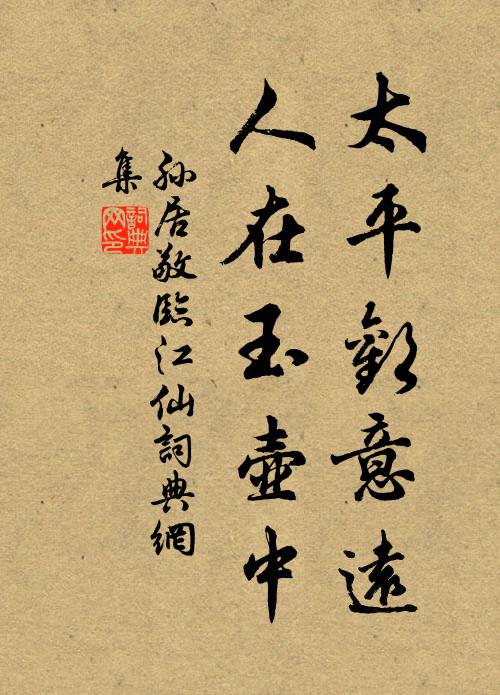 太平歡意遠
人在玉壺中
孫居敬臨江仙詞典網
集
詞典网印